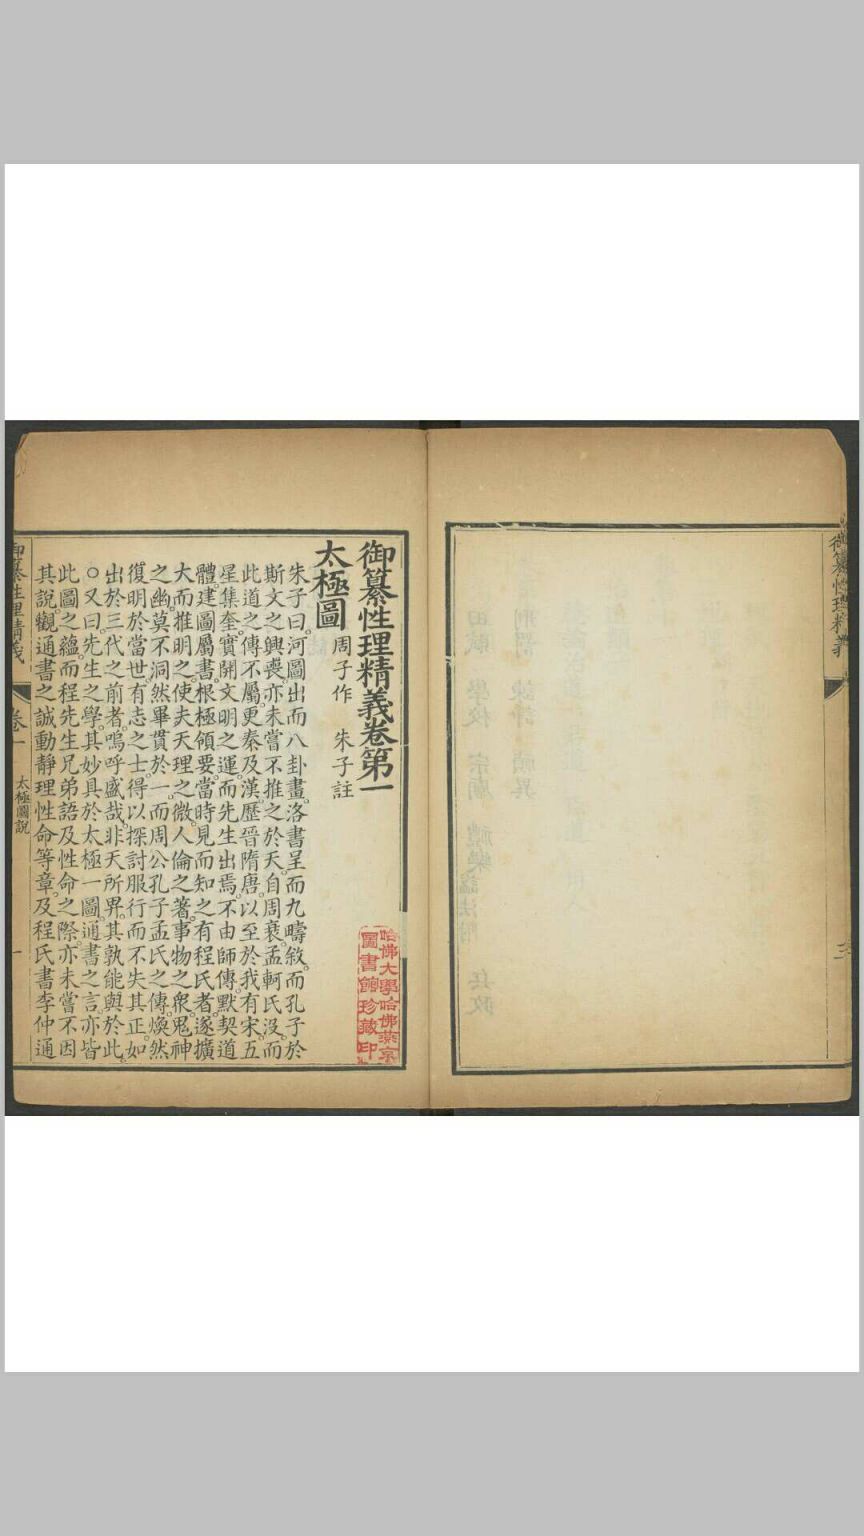 御纂性理精義
三
御纂性理精義卷第一
太極圖
周子作 朱子註
朱子曰。河圖出而八卦畫。洛書呈而九疇敘。而孔子於
斯文之興喪。亦未嘗不推之於天。自周衰。孟軻氏沒。而
此道之傳不屬。更秦及漢。歷晉隋唐。以至於我有宋。五
星集奎。實開文明之運。而先生出焉。不由師傳。默契道
體。建圖屬書。根極領要。當時見而知之。有程氏者。遂擴
大而推明之。使夫天理之微。人倫之著。事物之衆。鬼神
之幽。莫不洞然畢貫於一。而周公孔子孟氏之傳。煥然
復明於當世。有志之士。得以探討服行。而不失其正。如
出於三代之前者。嗚呼盛哉。非天所畀。其孰能與於此。
○又曰。先生之學。其妙具於太極一圖。通書之言。亦皆
此圖之蘊。而程先生兄弟語及性命之際。亦未嘗不因
其說。觀通書之誠動靜理性命等章。及程氏書李仲通
御纂性理精義
卷一
太極圖說
一
哈佛大學哈佛燕京
圖書館珍藏印